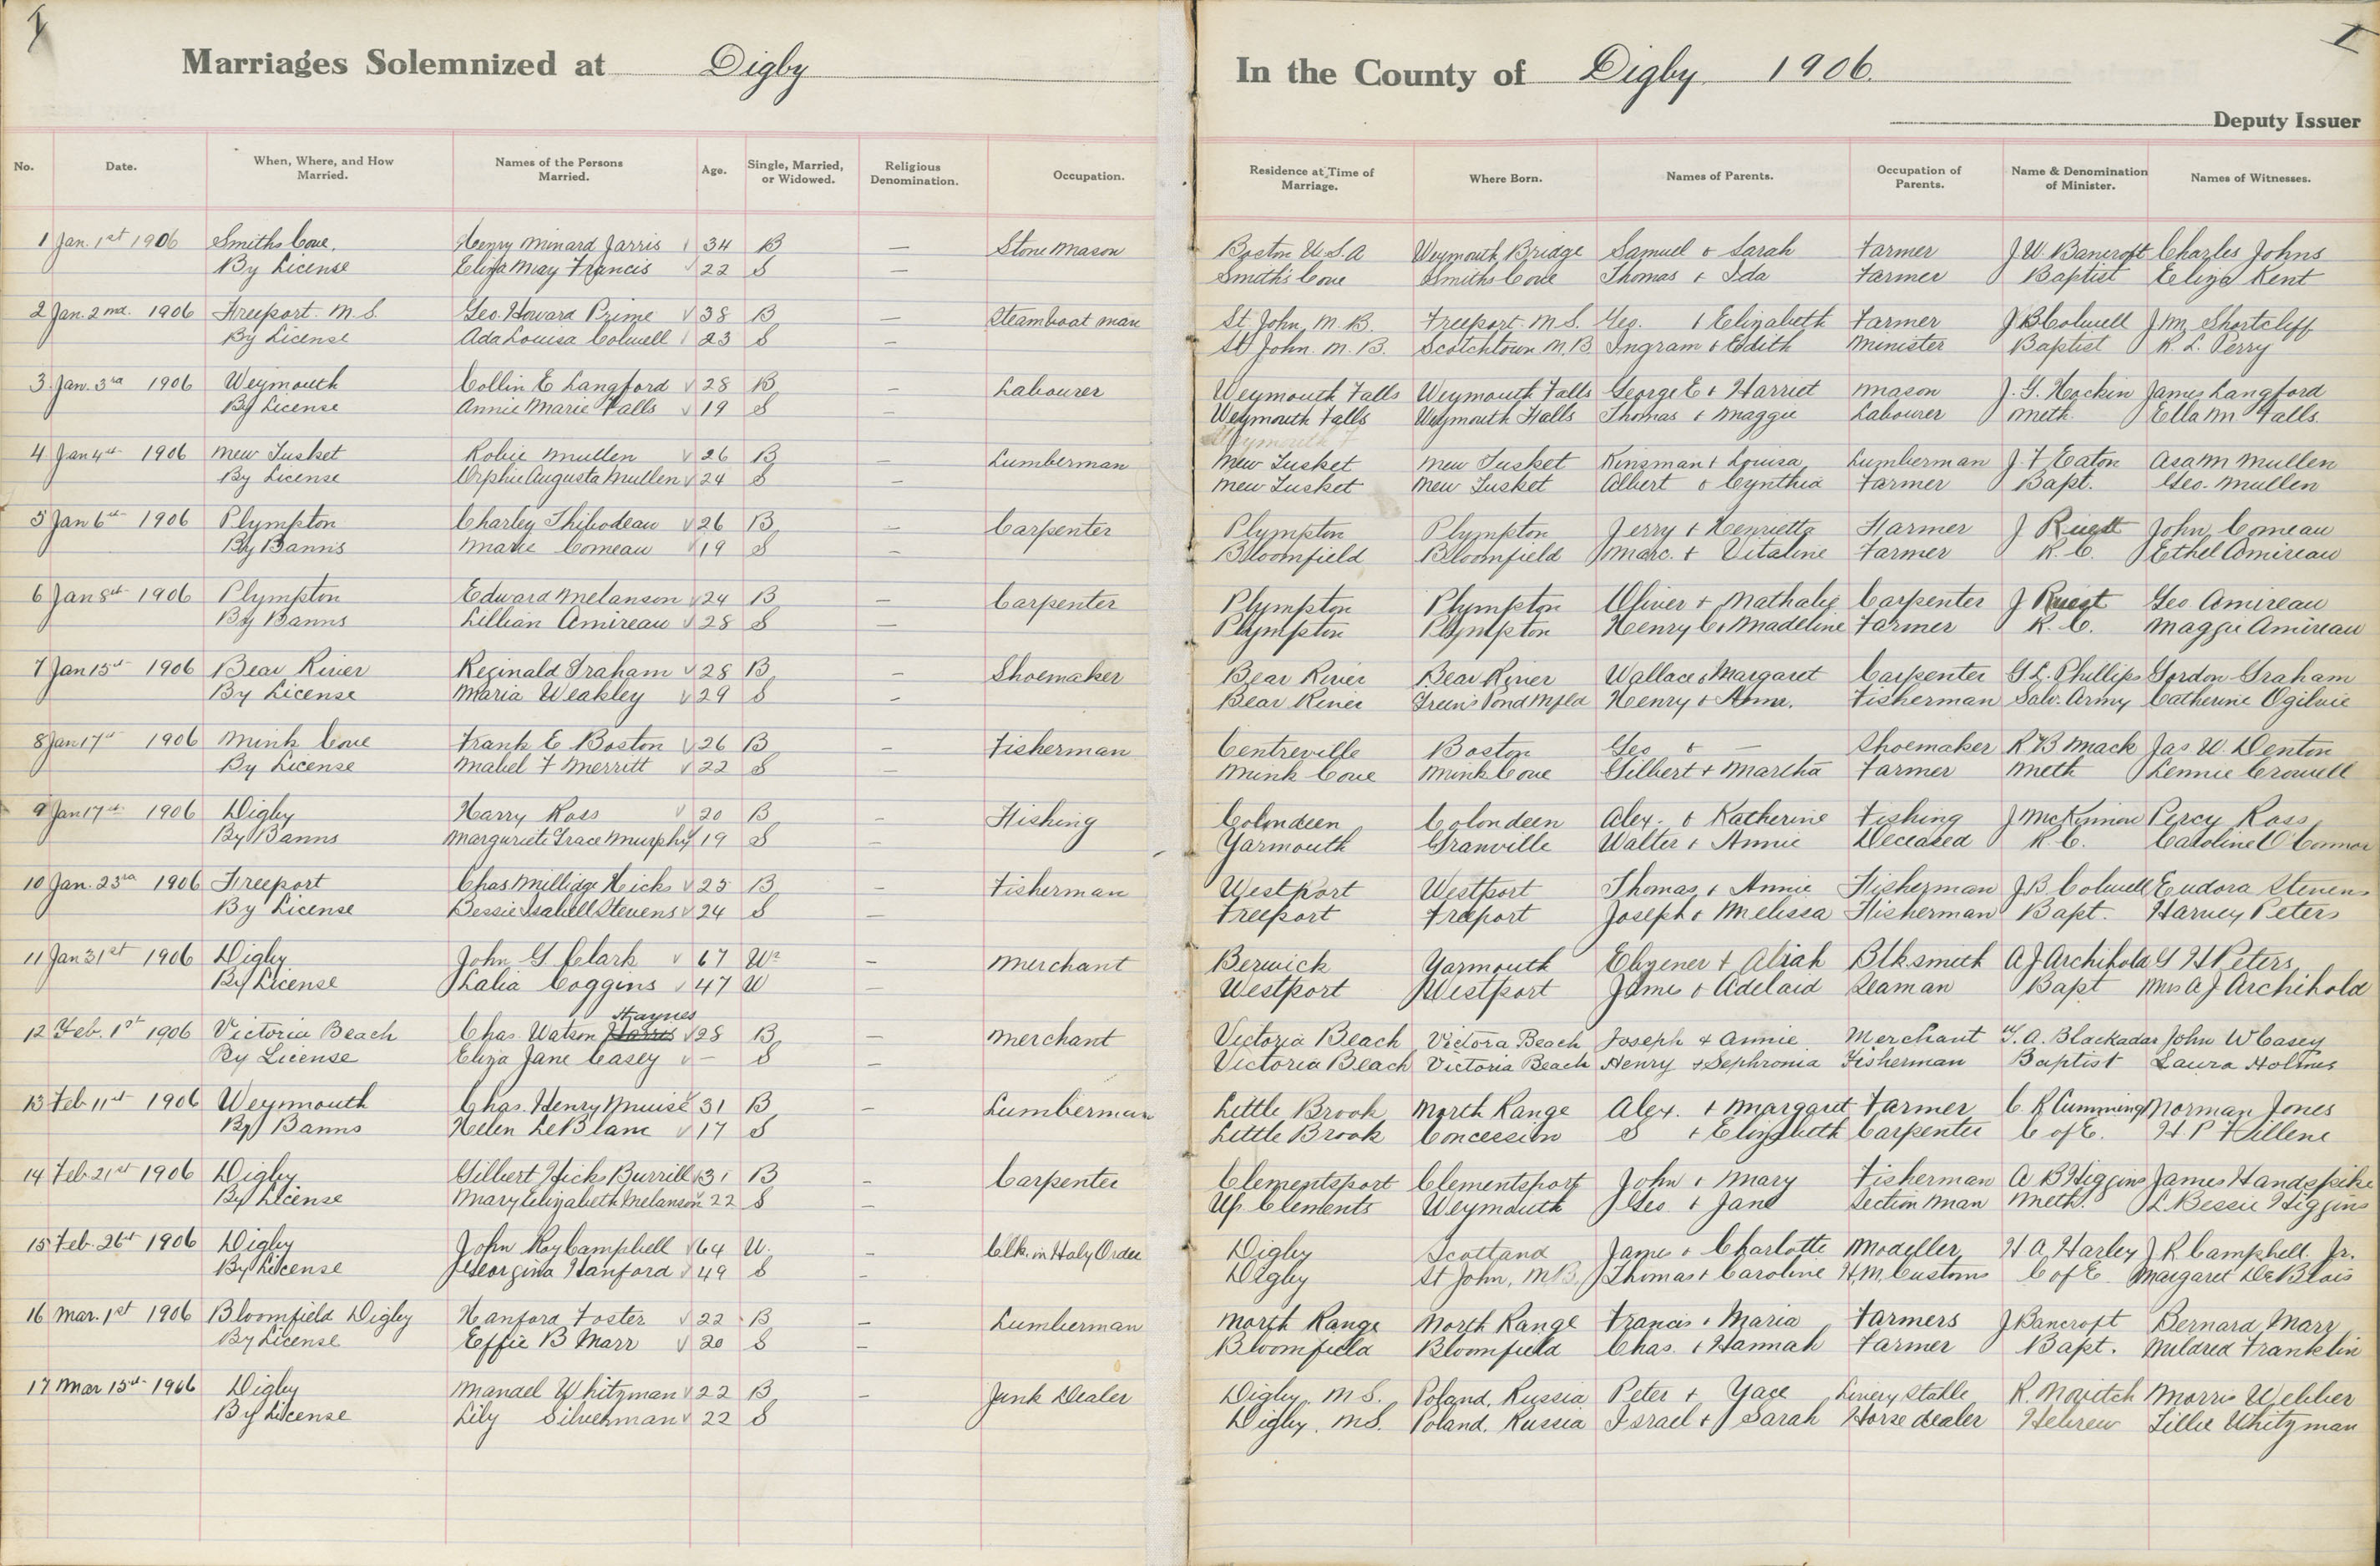 1
Marriages Solemnized at Digby
In the County of Digby 1906.
Deputy Issuer
No. Date. When, Where, and How Married. Names of the Persons Married. Age. Single, Married, or Widowed. Religious Denomination. Occupation. Residence at Time of Marriage. Where Born. Names of Parents. Occupation of Parents. Name & Denomination of Minister. Names of Witnesses.
1 Jan. 1st 1906 Smiths Cove. Henry Minard Jarris 34 B — Stone Mason Boston U.S.A Weymouth Bridge Samuel & Sarah Farmer J.W. Bancroft Charles Johns
By License Eliza May Francis 22 S — Smith's Cove Smiths Cove Thomas & Ida Farmer Baptist Eliza Kent
2 Jan. 2nd. 1906 Freeport N.S. Geo. Howard Prime 38 B — Steamboat man St. John, N.B. Freeport N.S. Geo. & Elizabeth Farmer J B Colwell J.M. Shortcliff
By License Ada Louisa Colwell 23 S — St John. N.B. Scotchtown N.B. Ingram & Edith Minister Baptist R. L. Perry
3 Jan. 3rd 1906 Weymouth Collin E Langford 28 B — Labourer Weymouth Falls Weymouth Falls George E & Harriet Mason J. G. Hockin James Langford
By License Annie Marie Falls 19 S — Weymouth Falls Weymouth Falls Thomas & Maggie Labourer Meth. Ella M Falls
4 Jan 4th 1906 New Tusket Robie Mullen 26 B — Lumberman New Tusket New Tusket Kinsman & Louisa Lumberman J. F Eaton Asa M Mullen
By License Orphie Augusta Mullen 24 S — New Tusket New Tusket Albert & Cynthia Farmer Bapt. Geo. Mullen
5 Jan 6th 1906 Plympton Charley Thibodeau 26 B — Carpenter Plympton Plympton Jerry & Henrietta Farmer J Ruest John Comeau
By Banns Marie Comeau 19 S — Bloomfield Bloomfield Marc. & Vitaline Farmer R. C. Ethel Amireau
6 Jan 8th 1906 Plympton Edward Melanson 24 B — Carpenter Plympton Plympton Oliver & Nathalie Carpenter J Ruest Geo Amireau
By Banns Lillian Amireau 28 S — Plympton Plympton Henry C & Madeline Farmer R. C. Maggie Amireau
7 Jan 15th 1906 Bear River Reginald Graham 28 B — Shoemaker Bear River Bear River Wallace & Margaret Carpenter G.L. Phillips Gordon Graham
By License Maria Weakley 29 S — Bear River Green's Pond Nfld Henry & Anna. Fisherman Salv. Army Catherine Ogilvie
8 Jan 17th 1906 Mink Cove Frank E Boston 26 B — Fisherman Centreville Boston Geo & — Shoemaker R B Mack Jas. W. Denton
By License Mabel F Merritt 22 S — Mink Cove Mink Cove Gilbert & Martha Farmer Meth Lennie Crowell
9 Jan 17th 1906 Digby Harry Ross 20 B — Fishing Colondeen Colondeen Alex. & Katherine Fishing J McKinnon Percy Ross
By Banns Marguriete Grace Murphy 19 S — Yarmouth Granville Walter & Annie Deceased R. C. Caroline O'Connor
10 Jan. 23rd 1906 Freeport Chas Millidge Hicks 25 B — Fisherman Westport Westport Thomas & Annie Fisherman J.B. Colwell Eudora Stevens
By License Bessie Isabell Stevens 24 S — Freeport Freeport Joseph & Melissa Fisherman Bapt. Harvey Peters
11 Jan 31st 1906 Digby John G Clark 67 Wr — Merchant Berwick Yarmouth Ebzener & Aliah Blksmith A J Archibold G H Peters
By License Thalia Coggins 47 W — Westport Westport James & Adelaid Seaman Bapt Mrs A J Archibold
12 Feb. 1st 1906 Victoria Beach Chas. Watson Haynes 28 B — Merchant Victoria Beach Victora Beach Joseph & Annie Merchant W.A. Blackadar John W Casey
By License Eliza Jane Casey — S — Victoria Beach Victoria Beach Henry & Sephronia Fisherman Baptist Laura Holmes
13 Feb 11th 1906 Weymouth Chas. Henry Muise 31 B — Lumberman Little Brook North Range Alex. & Margaret Farmer C R Cumming Norman Jones
By Banns Helen LeBlanc 17 S — Little Brook Concession S & Elizabeth Carpenter C of E. H P Fillene
14 Feb 21st 1906 Digby Gilbert Hicks Burrill 31 B — Carpenter Clementsport Clementsport John & Mary Fisherman A B Higgins James Handspike
By License Mary Elizabeth Melanson 22 S — Up. Clements Weymouth Geo & Jane Section Man Meth. L. Bessie Higgins
15 Feb. 26th 1906 Digby John Roy Campbell 64 W. — Clk. in Holy Order Digby Scotland James & Charlotte Modeller H A Harley J. R. Campbell. Jr.
By License Georgina Hanford 49 S — Digby St John, N.B. Thomas & Caroline H.M. Customs C of E. Margaret DeBlois
16 Mar. 1st 1906 Bloomfield Digby Hanford Foster 22 B — Lumberman North Range North Range Francis & Maria Farmers J Bancroft Bernard Marr
By License Effie B Marr 20 S — Bloomfield Bloomfield Chas. & Hannah Farmer Bapt. Mildred Franklin
17 Mar 15th 1906 Digby Mandel Whitzman 22 B — Junk Dealer Digby, N.S. Poland, Russia Peter & Yace Livery Stable R. Navitch Morris Webber
By License Lily Silverman 22 S Digby, N.S. Poland, Russia Israel & Sarah Horse dealer Hebrew Lillie Whitzman